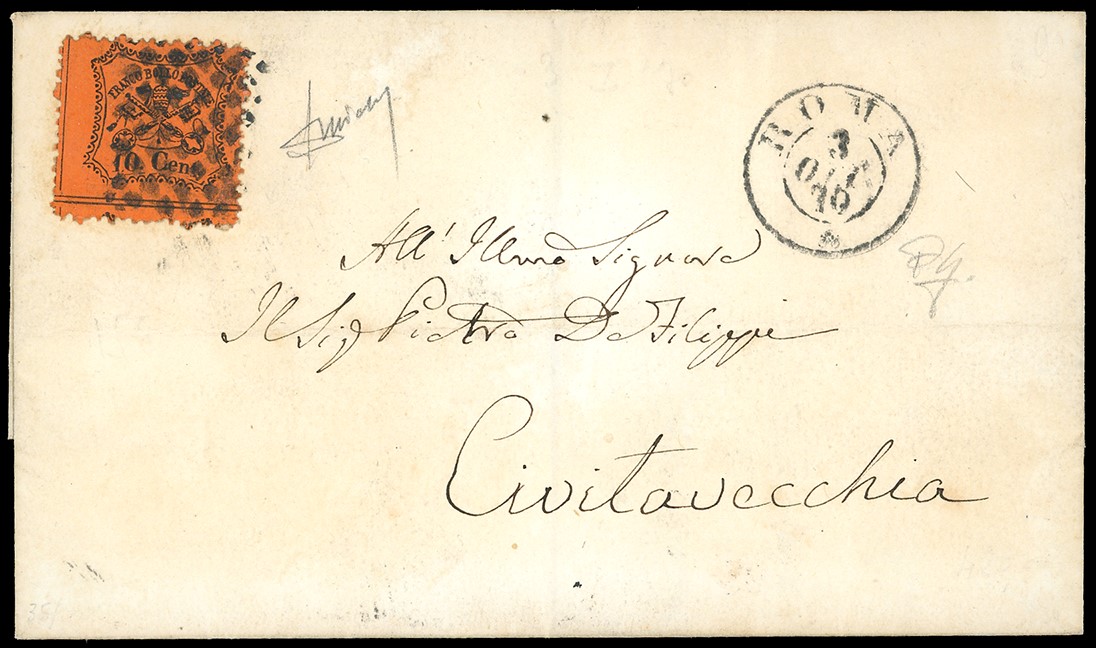 FRANCO BOLLO POSTALE
10 Cent
ROMA
3
OTT
70
All' Illmo Signore
Il Sig Pietro De Filippi
Civitavecchia